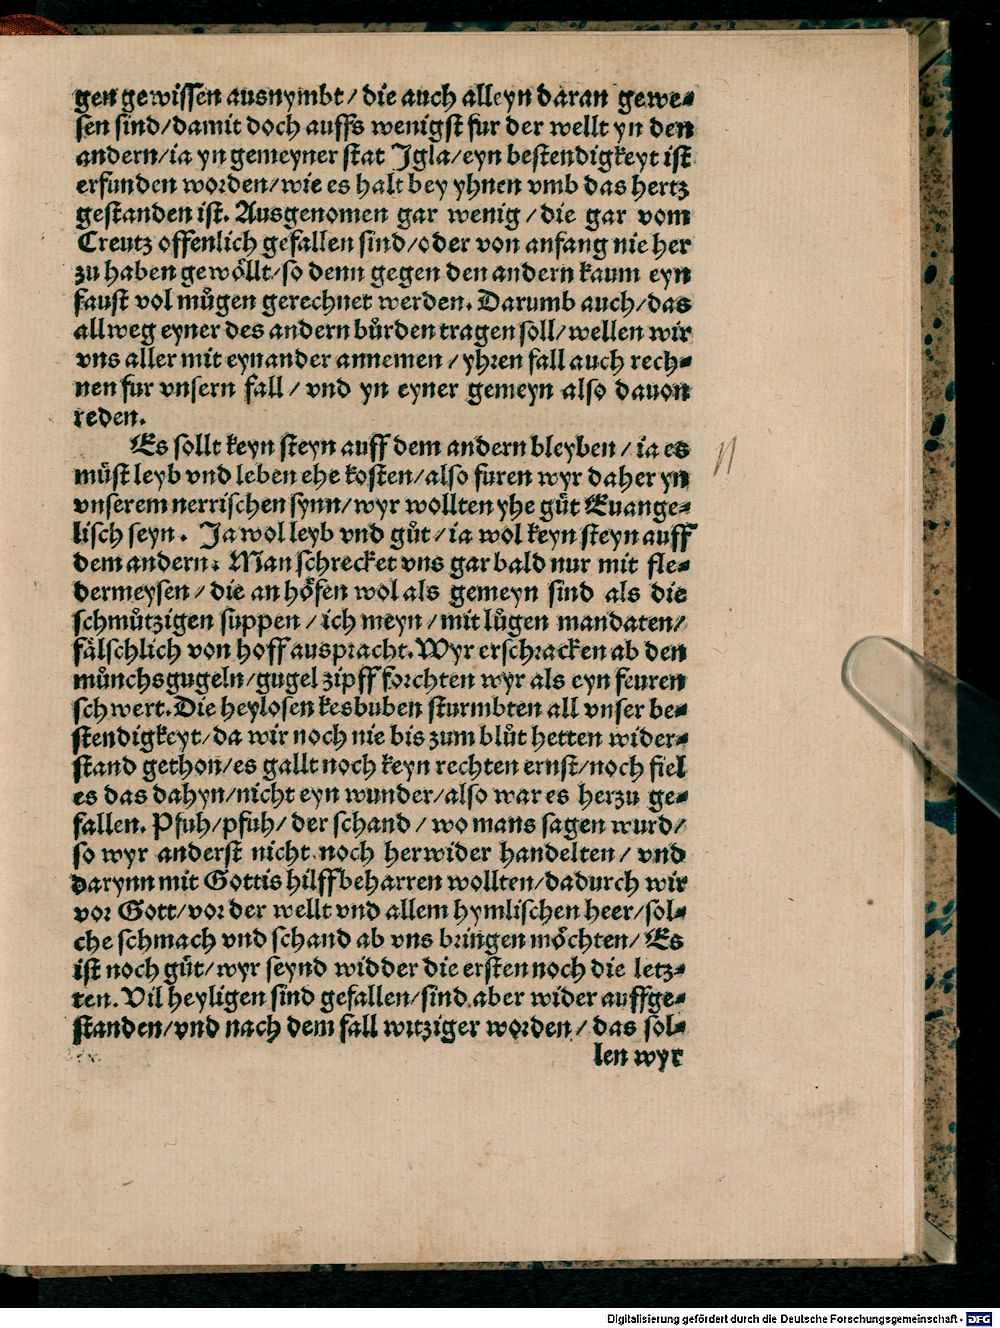 gen gewissen ausnymbt/ die auch alleyn daran gewe⸗
sen sind/damit doch auffs wenigst fur der wellt yn den
andern/ia yn gemeyner stat Jgla/eyn bestendigkeyt ist
erfunden worden/wie es halt bey yhnen vmb das hertz
gestanden ist. Ausgenomen gar wenig/die gar vom
Creutz offenlich gefallen sind/oder von anfang nie her
zu haben gewoͤllt/so denn gegen den andern kaum eyn
faust vol muͦgen gerechnet werden. Darumb auch/das
allweg eyner des andern buͦrden tragen soll/wellen wir
vns aller mit eynander annemen/yhren fall auch rech⸗
nen fur vnsern fall/vnd yn eyner gemeyn also dauon
reden.
Es sollt keyn steyn auff dem andern bleyben/ia es
muͤst leyb vnd leben ehe kosten/also furen wyr daher yn
vnserem nerrischen synn/wyr wollten yhe guͤt Euange⸗
lisch seyn. Ja wol leyb vnd guͦt/ia wol keyn steyn auff
dem andern. Man schrecket vns gar bald nur mit fle⸗
dermeysen/die an hoͤfen wol als gemeyn sind als die
schmuͦtzigen suppen/ich meyn/mit luͦgen mandaten/
faͤlschlich von hoff auspracht. Wyr erschracken ab den
muͦnchsgugeln/gugelzipff forchten wyr als eyn feuren
schwert. Die heylosen kesbuben sturmbten all vnser be⸗
stendigkeyt/da wir noch nie bis zum bluͦt hetten wider⸗
stand gethon/es gallt noch keyn rechten ernst/noch fiel
es das dahyn/nicht eyn wunder/also war es herzu ge⸗
fallen. Pfuh/pfuh/der schand/wo mans sagen wurd/
so wyr anderst nicht noch herwider handelten/vnd
darynn mit Gottis hilff beharren wollten/dadurch wir
vor Gott/vor der wellt vnd allem hymlischen heer/sol⸗
che schmach vnd schand ab vns bringen moͤchten/Es
ist noch guͤt/wyr seynd widder die ersten noch die letz⸗
ten. Vil heyligen sind gefallen/sind aber wider auffge⸗
standen/vnd nach dem fall witziger worden/das sol⸗
len wyr
Digitalisierung gefördert durch die Deutsche Forschungsgemeinschaft - DFG